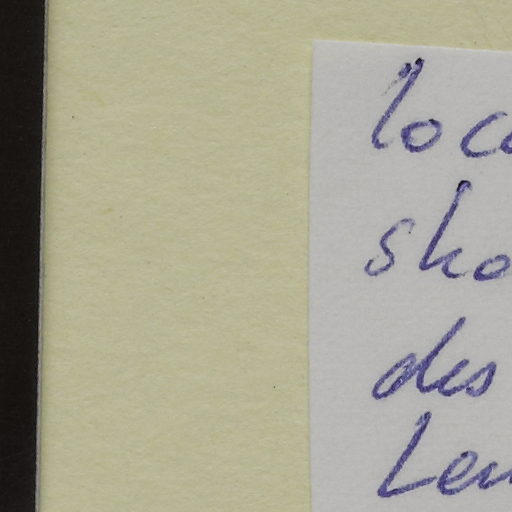 loca
sho
des
Leu